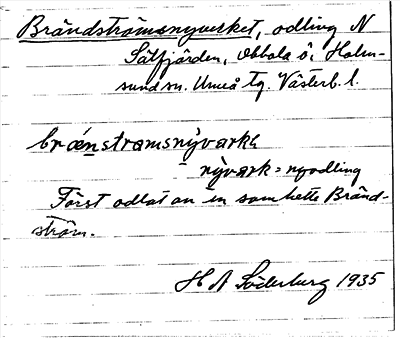 Brändströmsnyverket, odling N
Sätfjärden, Obbola ö, Holm-
sund sn. Umeå tg. Västerb. l.
brǽnstramsnỳvarkə
nỳvark = nyodling
Först odlat av en som hette Bränd-
ström.
H A Söderburg 1935